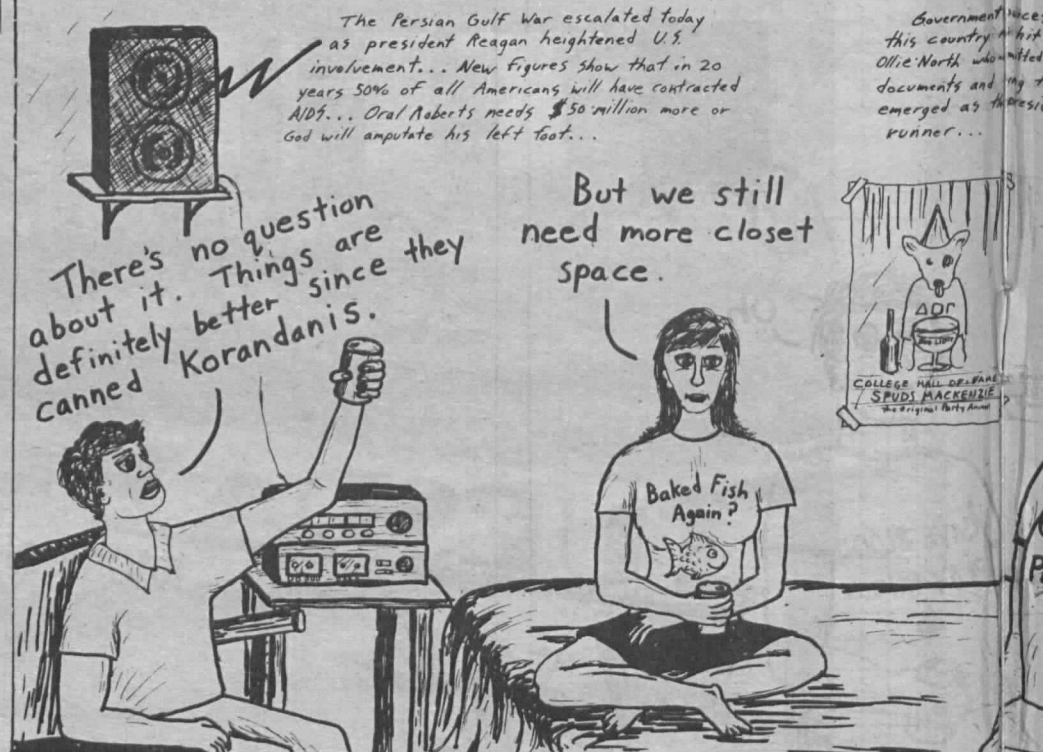 The Persian Gulf War escalated today
as president Reagan heightened U.S.
involvement... New figures show that in 20
years 50% of all Americans will have contracted
AIDS... Oral Roberts needs $50 million more or
God will amputate his left foot...
Government
this country hit
Ollie North who
documents and
emerged as
runner...
There's no question
about it. Things are
definitely better since they
canned Korandanis.
But we still
need more closet
space.
Baked Fish
Again?
BUD LIGHT
COLLEGE HALL OF FAME
SPUDS MACKENZIE
The Original Party Animal